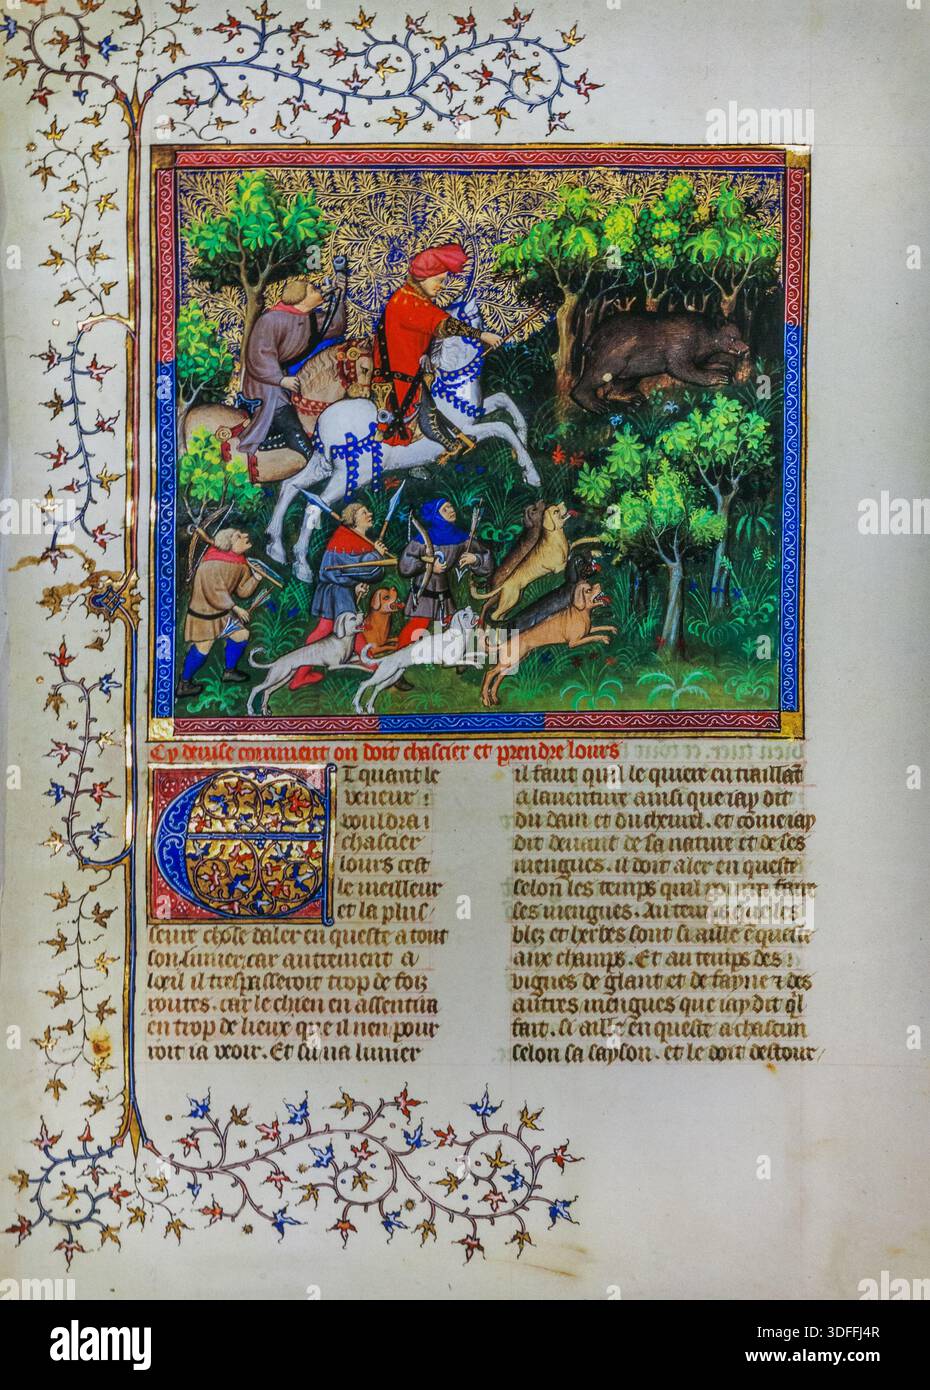 Cy devise comment on doit chascier et prendre lours
Et quant le
veneur
vouldra
chascier
lours cest
le meilleur
et la plus
seure chose daler en queste a tout
son limier, car autrement a
loeil il trespasseroit trop de foiz
routes. car le chien en assentira
en trop de lieux que il nen pour
roit ia veoir. Et si na limier
il faut quil le quiere en traillant
a laventure ainsi que iay dit
du dain et du chevrel. et come iay
dit devant de sa nature et de ses
mengues. il doit aler en queste
selon les temps quil pourra faire
ses mengues. Au temps que les
blez et herbes sont si aille en queste
aux champs. Et au temps des
vignes de glant et de fayne et des
autres mengues que iay dit ql
fait. si aille en queste a chascun
selon sa sayson. et le doit destour
alamy
Image ID: 3DFFJ4R
www.alamy.com